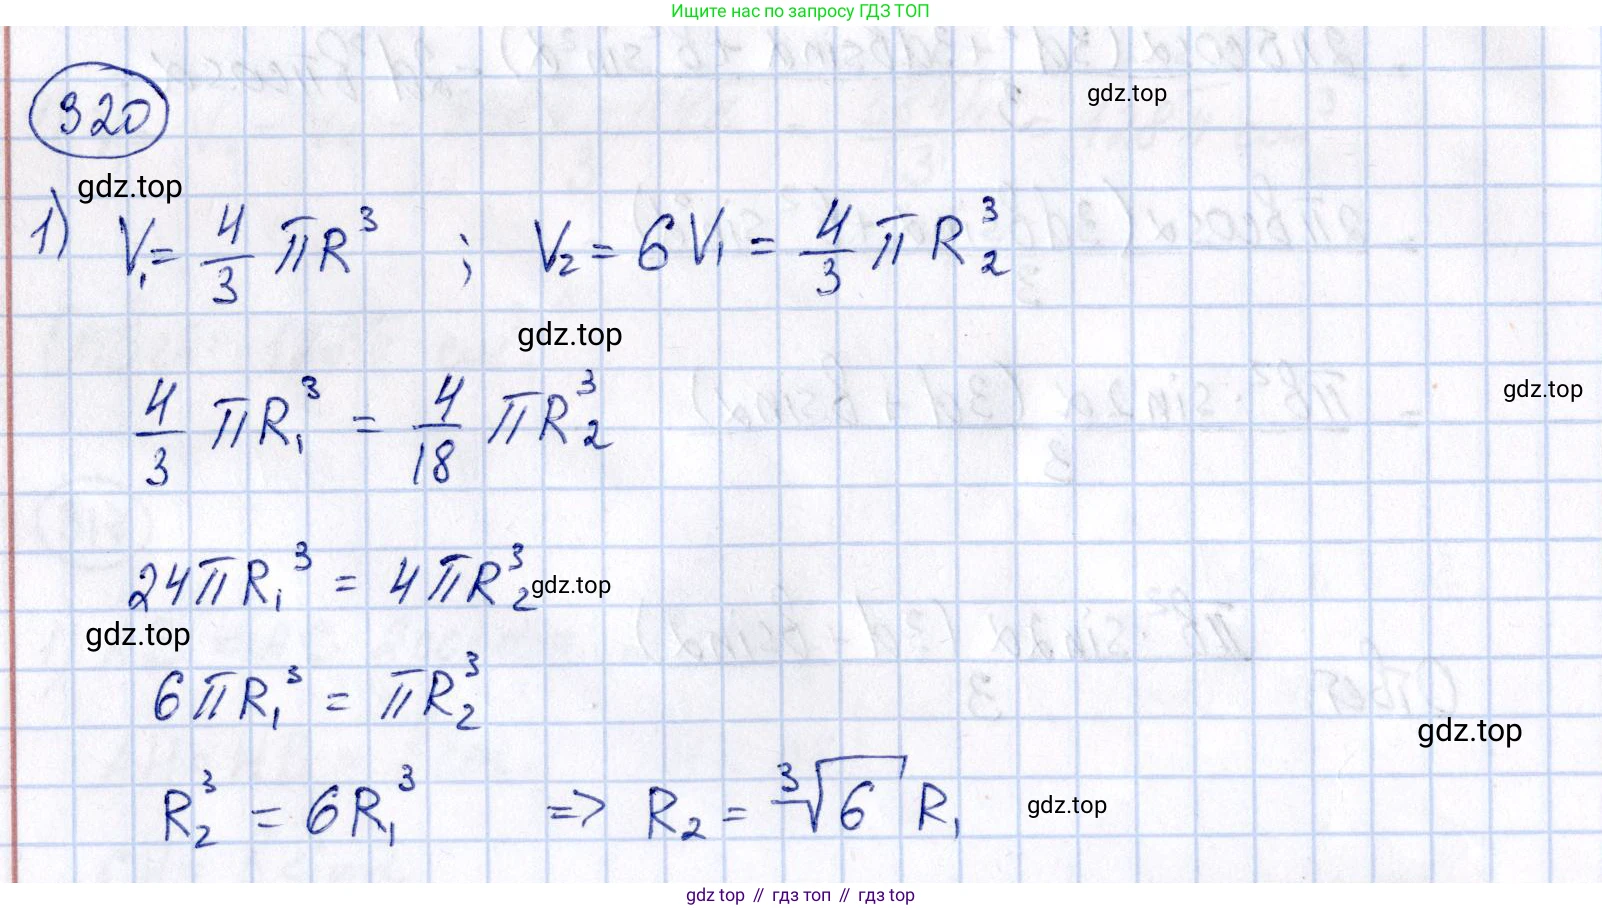 Ищите нас по запросу ГДЗ ТОП
gdz.top
320
gdz.top
1) V₁ = 4/3 πR³ ; V₂ = 6V₁ = 4/3 πR₂³
gdz.top
gdz.top
4/3 πR₁³ = 4/18 πR₂³
24πR₁³ = 4πR₂³
gdz.top
gdz.top
6πR₁³ = πR₂³
gdz.top
R₂³ = 6R₁³ => R₂ = ³√6 R₁
gdz.top
gdz top // гдз топ // гдз top